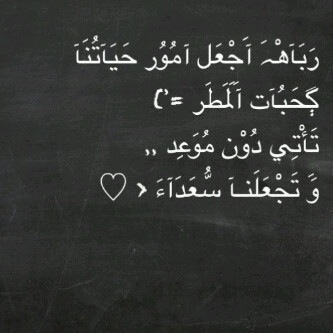 رَبَاَهْـَہ اَجْعَل اَمُوُر حَيَاَتُنَاَ
گحَبُاَت اَلَمَطَر =')
تَأَتِي دُوْن مُوَعِد ,,
وَ تَجْعَلَنـاَ سُّعَدَآءَ > ♡